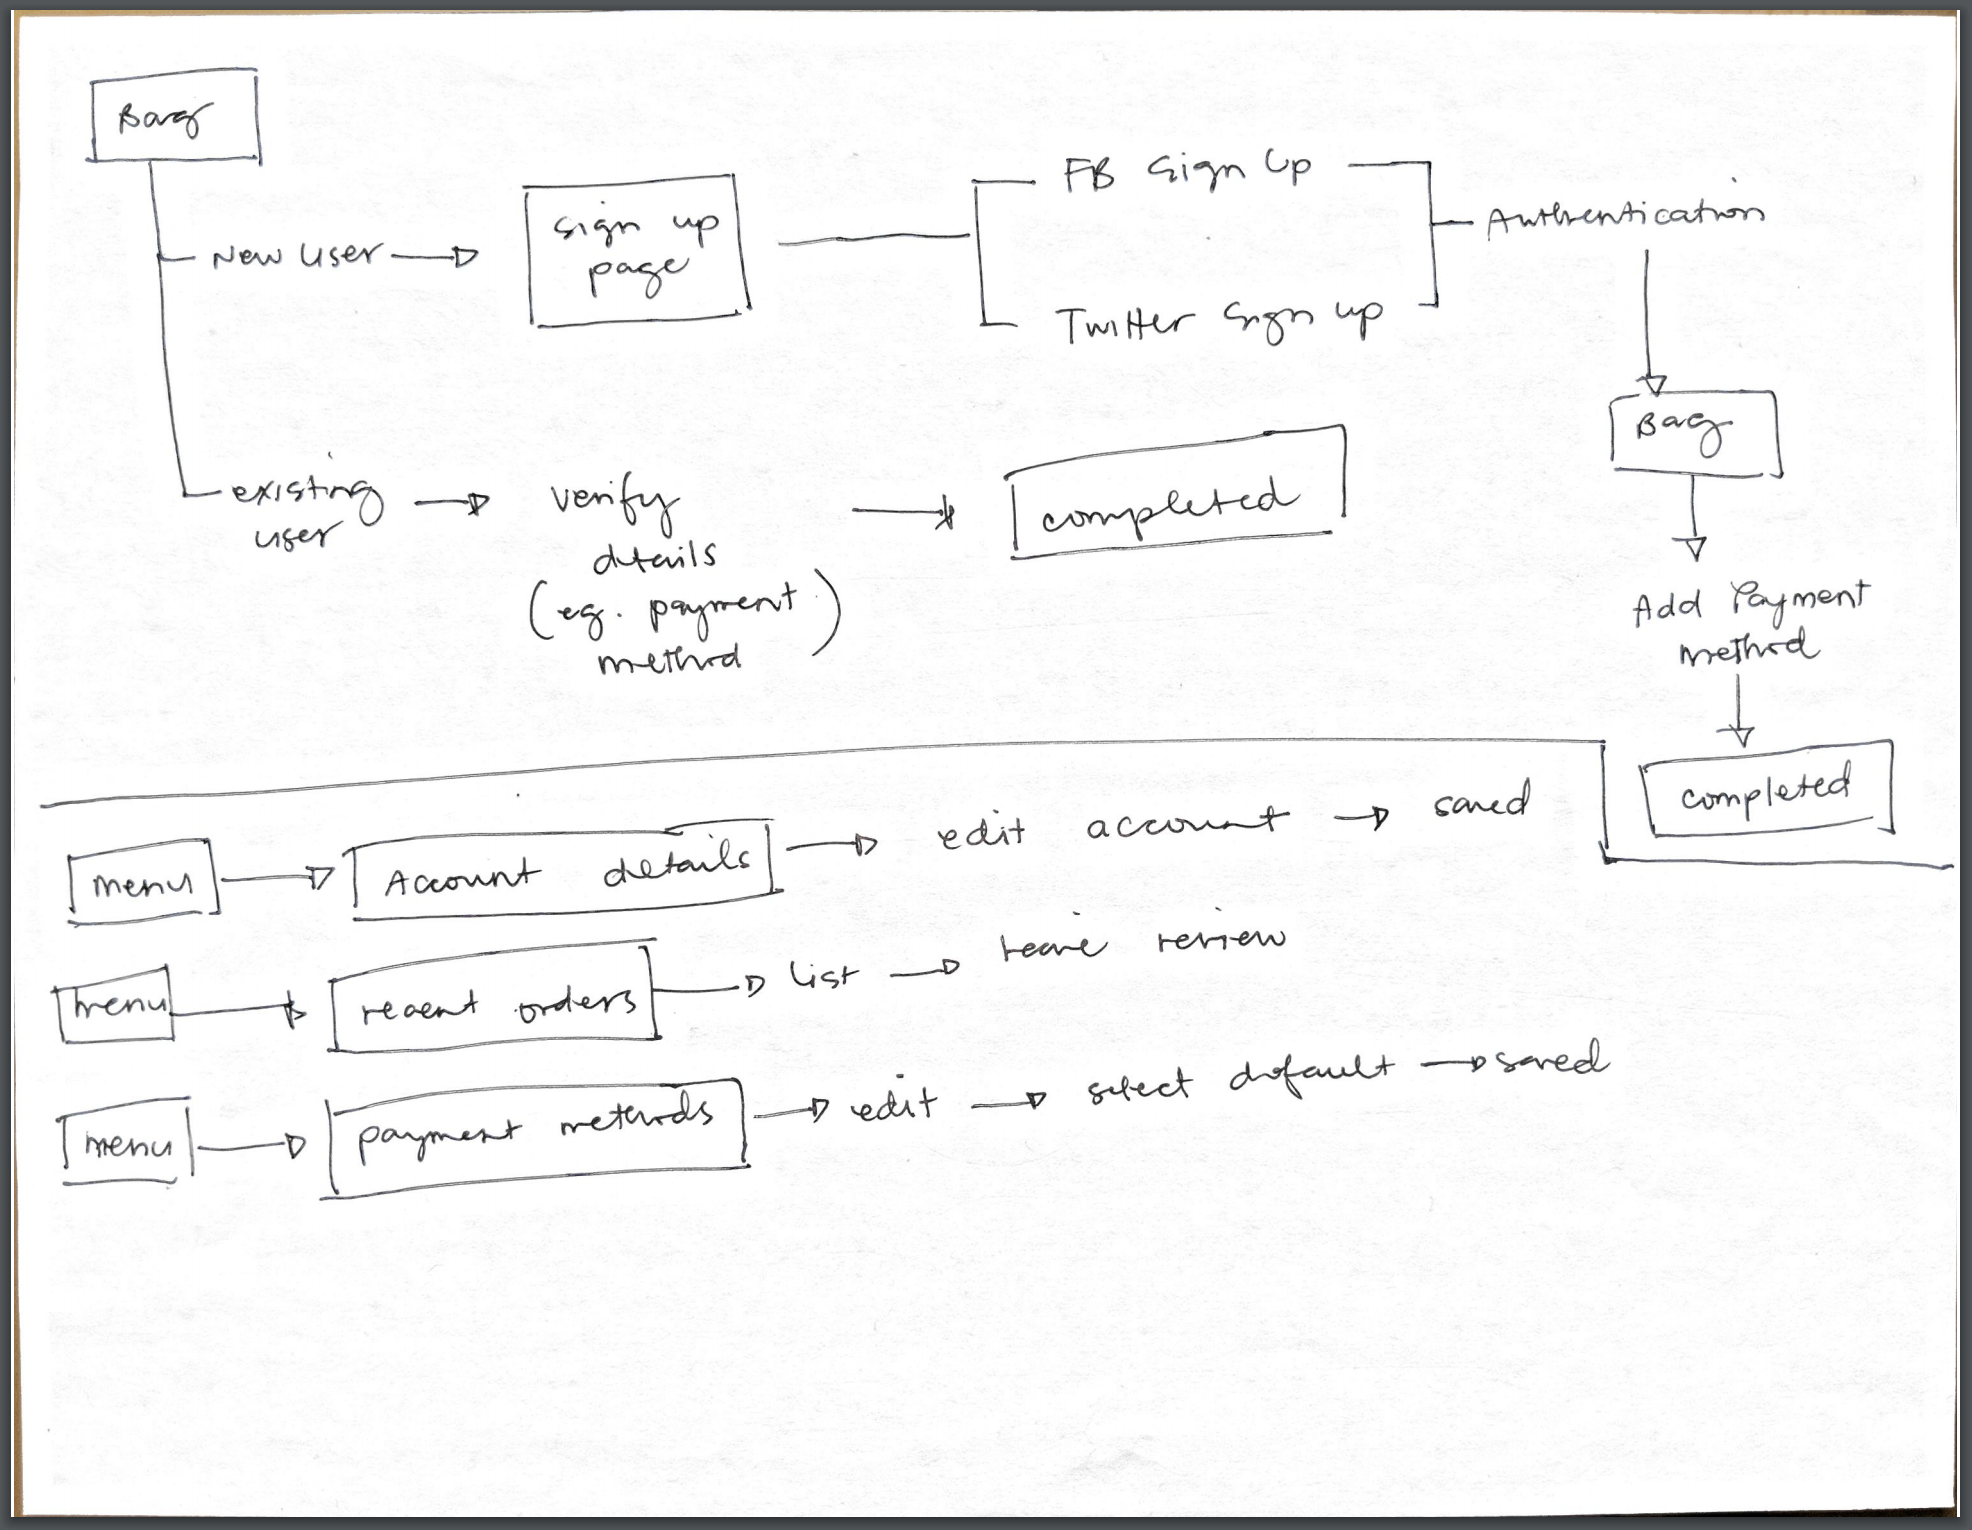 Bag
New User
sign up
page
FB Sign Up
Twitter Sign up
Authentication
Bag
Add Payment
method
completed
existing
user
verify
details
(eg. payment
method)
completed
menu
Account details
edit account
saved
menu
recent orders
list
leave review
menu
payment methods
edit
select default
saved